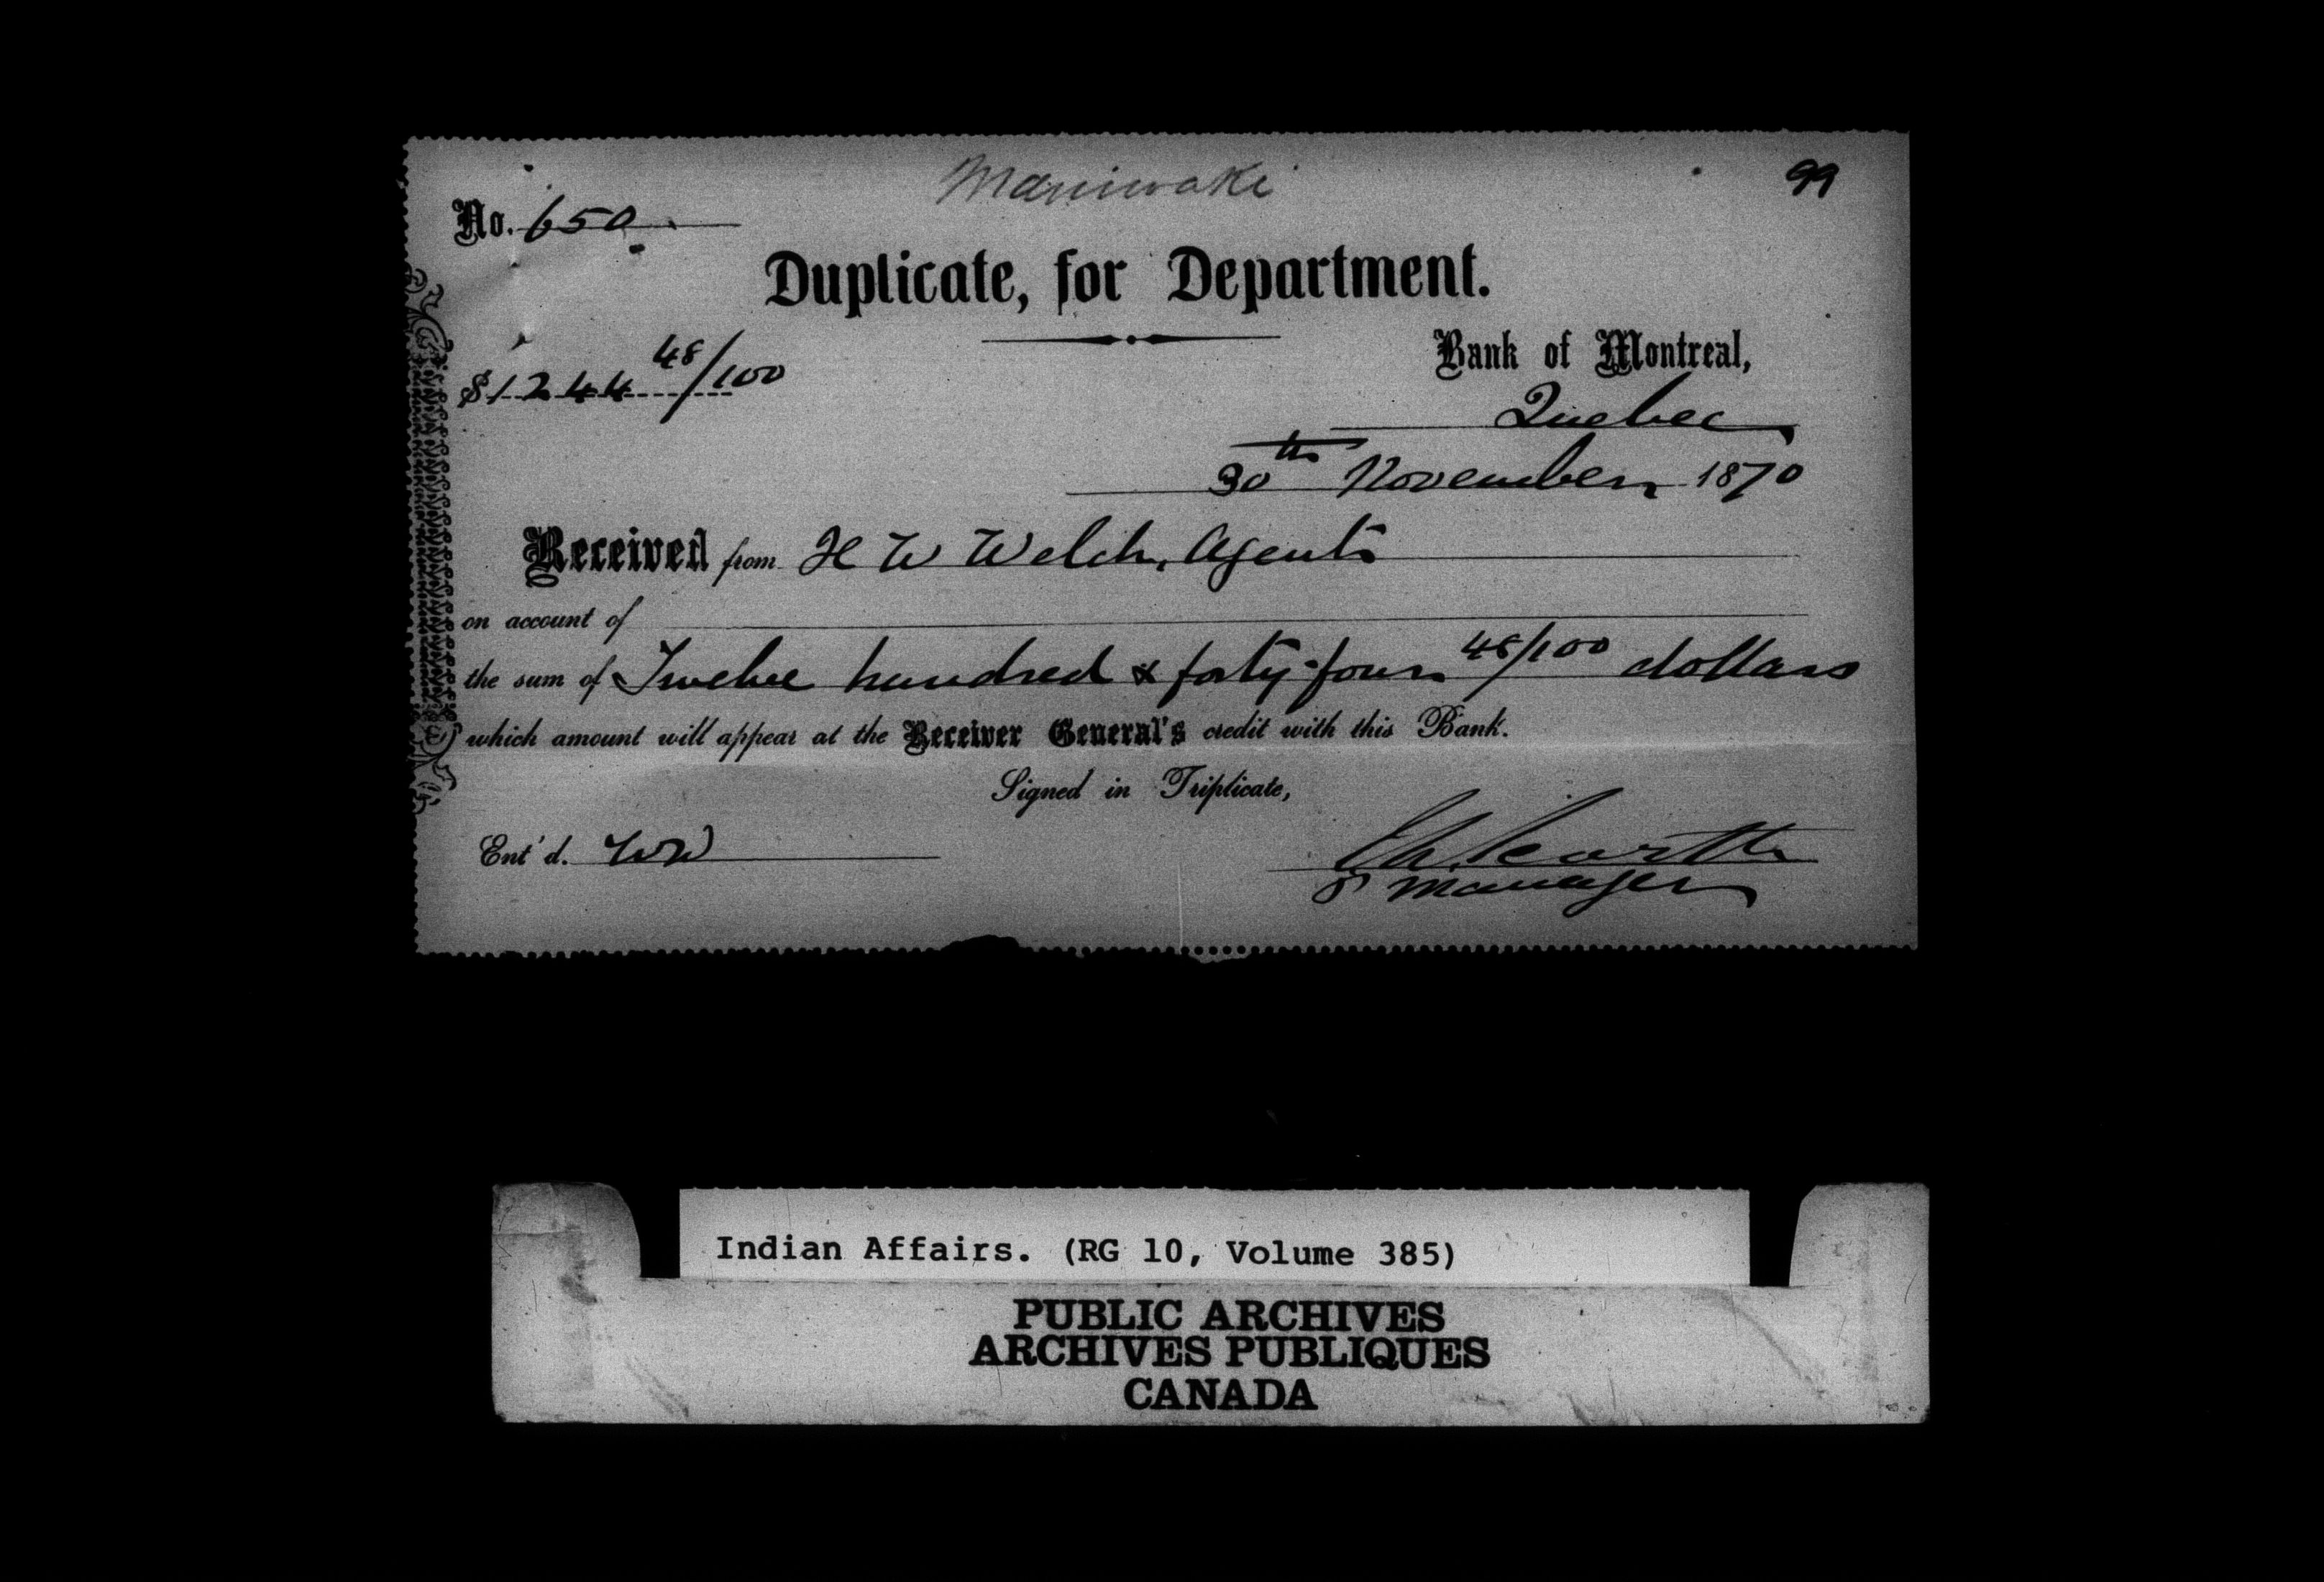 Maniwaki
99
No. 650
Duplicate, for Department.
$1244 48/100
Bank of Montreal,
Quebec
30th November 1870
Received from H W Welch, Agent
on account of
the sum of Twelve hundred & forty-four 48/100 dollars
which amount will appear at the Receiver General's credit with this Bank.
Signed in Triplicate,
Ent'd. WW
Manager
Indian Affairs. (RG 10, Volume 385)
PUBLIC ARCHIVES
ARCHIVES PUBLIQUES
CANADA